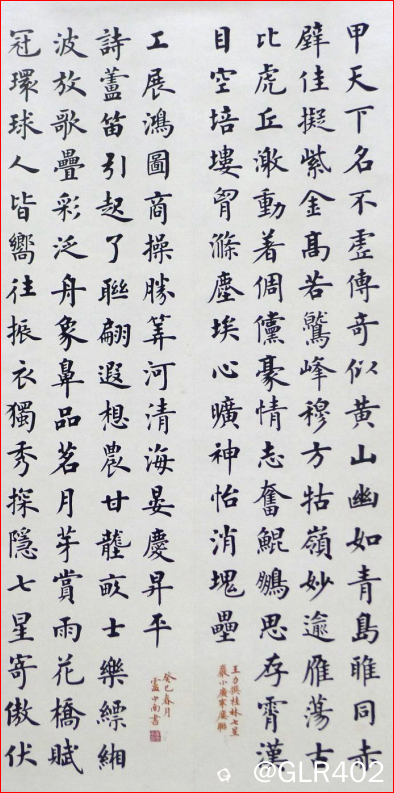 甲天下名不虛傳奇似黃山幽如青島雅同赤
壁佳擬紫金高若鷲峰穆方牯嶺妙逾雁蕩古
比虎丘激動着倜儻豪情志奮鯤鵬思存霄漢
目空培塿胷滌塵埃心曠神怡消塊壘
王力撰桂林七星
巖小廣寒樓聯
冠環球人皆嚮往振衣獨秀探隱七星寄傲伏
波放歌疊彩泛舟象鼻品茗月芽賞雨花橋賦
詩蘆笛引起了聯翩遐想農甘隴畝士樂縹緗
工展鴻圖商操勝筭河清海晏慶昇平
癸巳春月
盧中南書
@GLR402